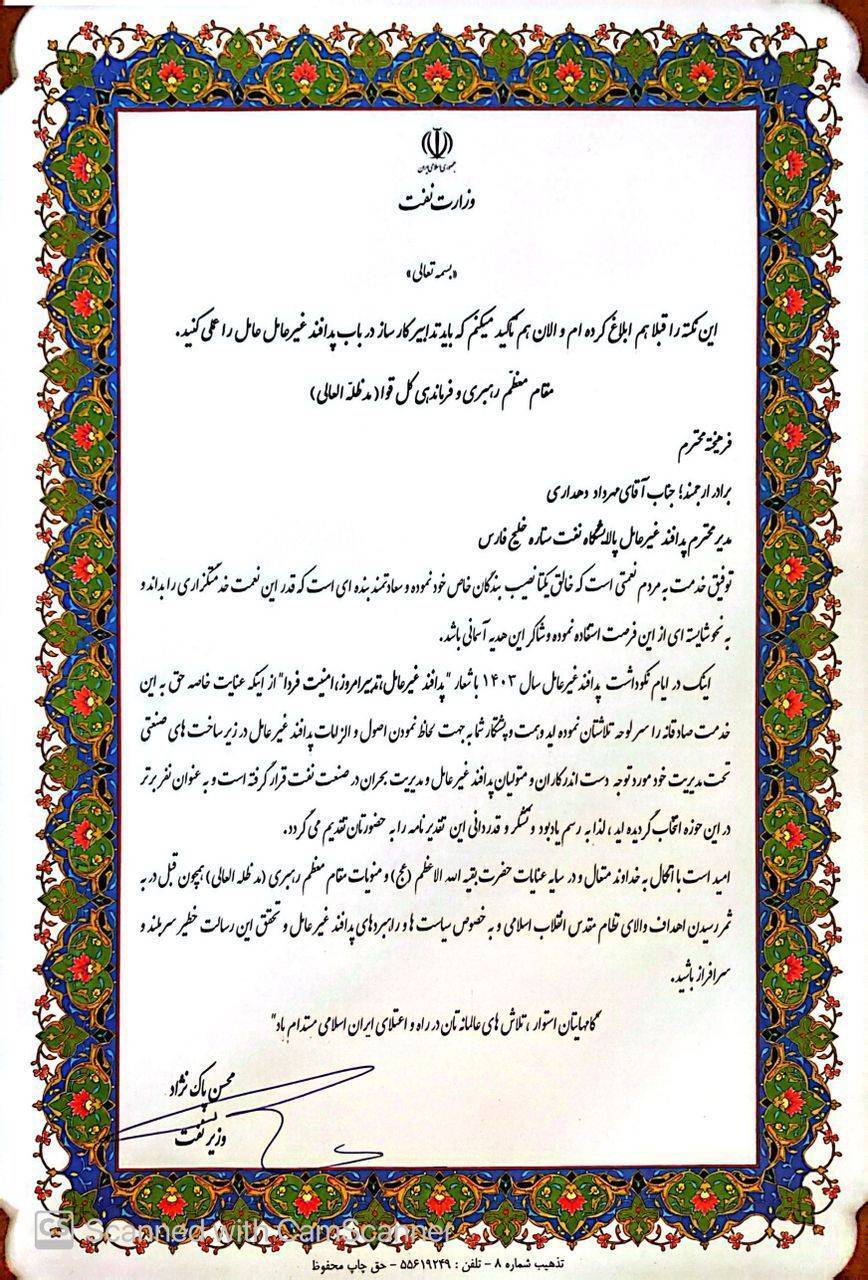 جمهوری اسلامی ایران
وزارت نفت
«بسمه تعالی»
این نکته را قبلا هم ابلاغ کرده ام و الان هم تاکید میکنم که باید تدابیر کار ساز در باب پدافند غیرعامل عامل را عملی کنید.
مقام معظّم رهبری و فرماندهی کل قوا(مد ظلّه العالی)
فرهیخته محترم
برادر ارجمند؛ جناب آقای مهرداد دهداری
مدیر محترم پدافند غیرعامل پالایشگاه نفت ستاره خلیج فارس
توفیق خدمت به مردم نعمتی است که خالق یکتا نصیب بندگان خاص خود نموده و سعادتمند بنده ای است که قدر این نعمت خدمتگزاری را بداند و
به نحو شایسته ای از این فرصت استفاده نموده و شاکر این هدیه آسمانی باشد.
اینک در ایام نکوداشت پدافند غیرعامل سال ۱۴۰۳ با شعار "پدافند غیرعامل،تدبیر امروز،امنیت فردا" از اینکه عنایت خاصه حق به این
خدمت صادقانه را سر لوحه تلاشتان نموده اید و همت و پشتکار شما به جهت لحاظ نمودن اصول و الزامات پدافند غیر عامل در زیر ساخت های صنعتی
تحت مدیریت خود مورد توجه دست اندرکاران و متولیان پدافند غیرعامل و مدیریت بحران در صنعت نفت قرار گرفته است و به عنوان نفر برتر
در این حوزه انتخاب گردیده اید ، لذا به رسم یادبود و تشکر و قدردانی این تقدیر نامه را به حضورتان تقدیم می گردد.
امید است با اتکال به خداوند متعال و در سایه عنایات حضرت بقیه الله الاعظم (عج) و منویات مقام معظم رهبری (مد ظله العالی) همچون قبل در به
ثمر رسیدن اهداف والای نظام مقدس انقلاب اسلامی و به خصوص سیاست ها و راهبردهای پدافند غیر عامل و تحقق این رسالت خطیر سربلند و
سرافراز باشید.
گامهایتان استوار ، تلاش های عالمانه تان در راه و اعتلای ایران اسلامی مستدام باد"
محسن پاک نژاد
وزیر نفت
CS Scanned with CamScanner
تذهیب شماره ۸ - تلفن : ۵۵۶۱۹۲۴۹ - حق چاپ محفوظ